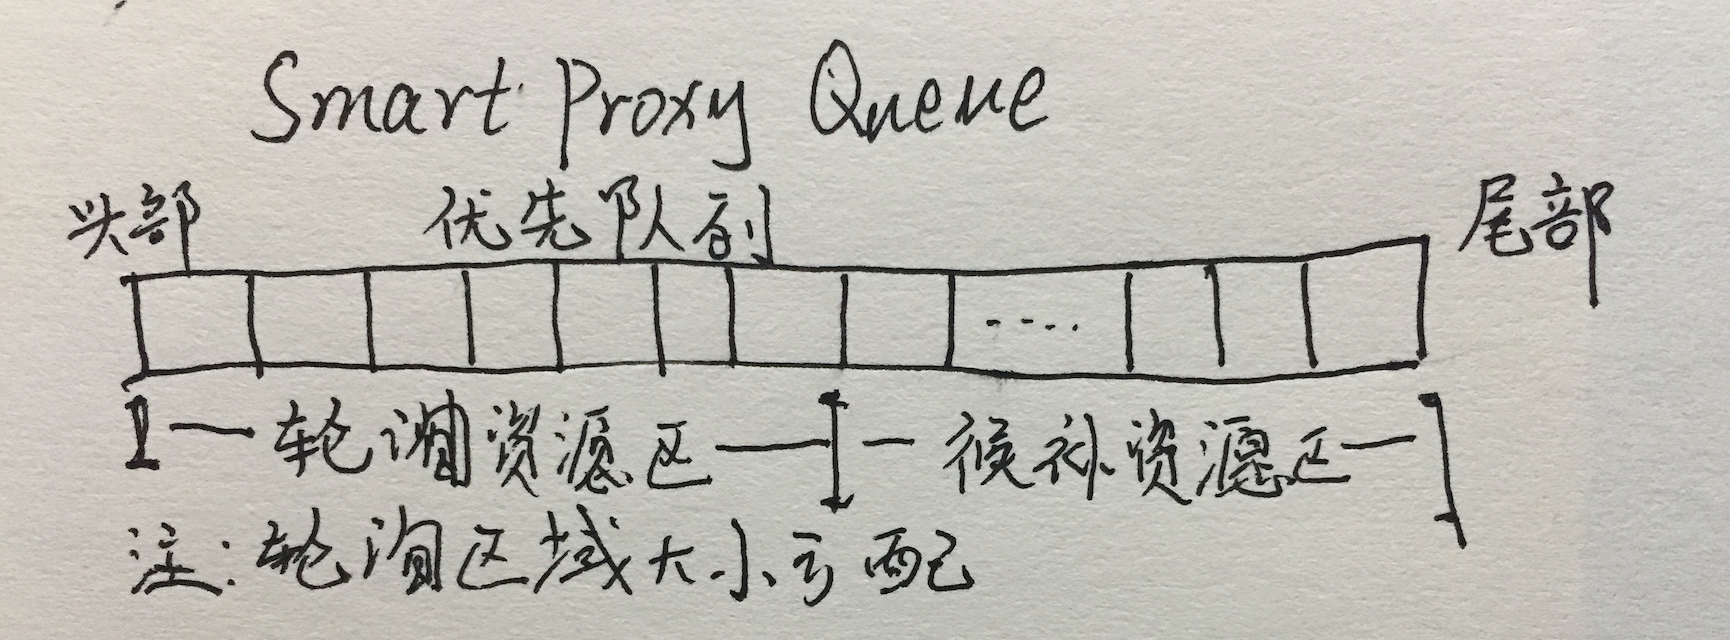 Smart Proxy Queue
头部 优先队列 尾部
....
轮询资源区 候补资源区
注:轮询区域大小可配